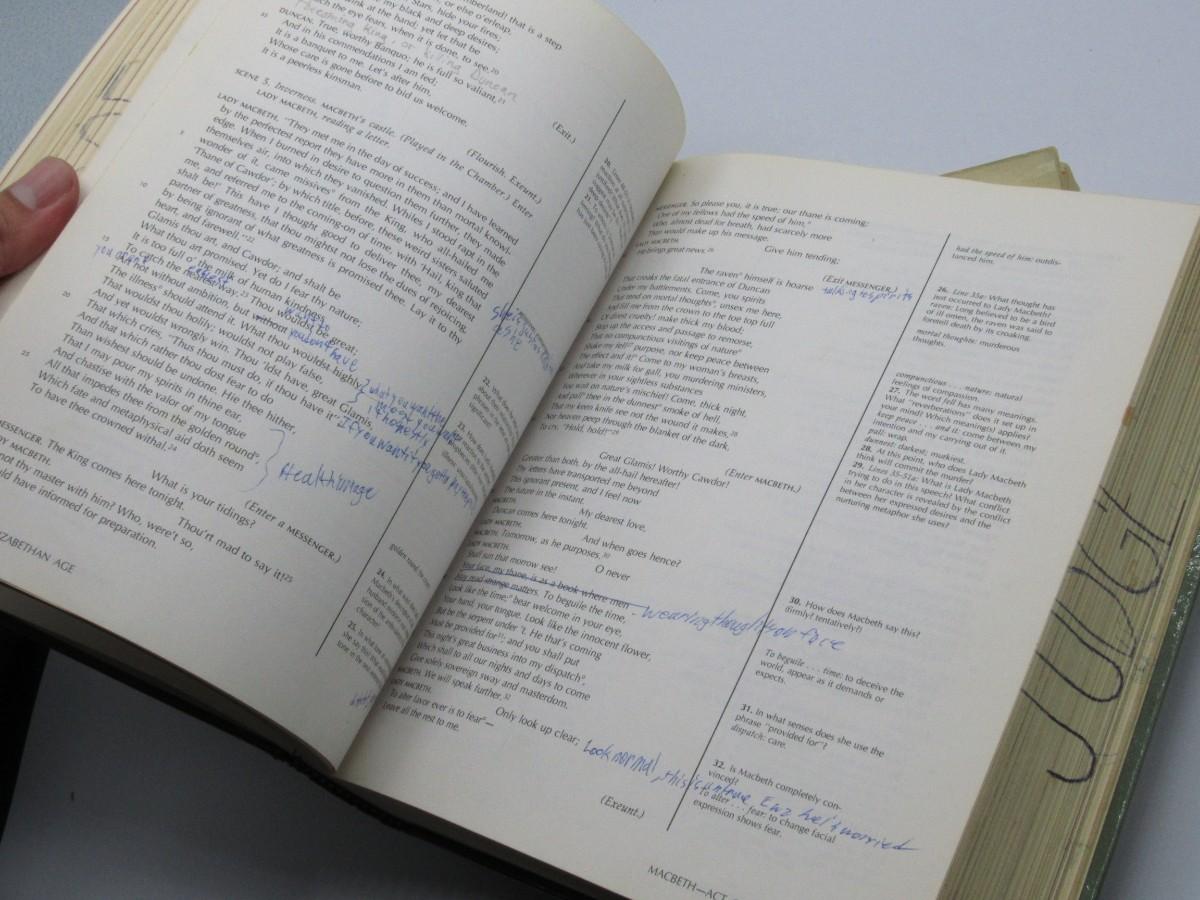 or else o'erleap,
Stars, hide your fires;
my black and deep desires;
at the hand; yet let that be
the eye fears, when it is done, to see.20
DUNCAN. True, worthy Banquo; he is full so valiant,21
And in his commendations I am fed;
It is a banquet to me. Let's after him,
Whose care is gone before to bid us welcome.
It is a peerless kinsman.
king, or killing Duncan
(Flourish. Exeunt.)
(Exit.)
SCENE 5. Inverness. MACBETH's castle. (Played in the Chamber.) Enter
LADY MACBETH, reading a letter.
LADY MACBETH. "They met me in the day of success; and I have learned
by the perfectest report they have more in them than mortal knowl-
edge. When I burned in desire to question them further, they made
themselves air, into which they vanished. Whiles I stood rapt in the
wonder of it, came missives° from the King, who all-hailed me
'Thane of Cawdor'; by which title, before, these weird sisters saluted
me, and referred me to the coming-on of time, with 'Hail, King that
shalt be!' This have I thought good to deliver thee, my dearest
partner of greatness, that thou mightst not lose the dues of rejoicing,
by being ignorant of what greatness is promised thee. Lay it to thy
heart, and farewell."22
Glamis thou art, and Cawdor; and shalt be
What thou art promised. Yet do I fear thy nature;
It is too full o' the milk of human kindness
To catch the nearest way.23 Thou wouldst be great;
Art not without ambition, but without
The illness° should attend it. What thou wouldst highly,
That wouldst thou holily; wouldst not play false,
And yet wouldst wrongly win. Thou 'ldst have, great Glamis,
That which cries, "Thus thou must do, if thou have it";
And that which rather thou dost fear to do
Than wishest should be undone. Hie thee hither,
That I may pour my spirits in thine ear,
And chastise with the valor of my tongue
All that impedes thee from the golden round°,
Which fate and metaphysical aid doth seem
To have thee crowned withal.24
5
10
15
20
25
you don't have
(Enter a MESSENGER.)
What is your tidings?
MESSENGER. The King comes here tonight.
LADY MACBETH. Thou'rt mad to say it!25
not thy master with him? Who, were't so,
would have informed for preparation.
ELIZABETHAN AGE
MESSENGER. So please you, it is true; our thane is coming;
One of my fellows had the speed of him,°
Who, almost dead for breath, had scarcely more
Than would make up his message.
LADY MACBETH. Give him tending;
He brings great news.26
(Exit MESSENGER.)
talking to spirits
The raven° himself is hoarse
That croaks the fatal entrance of Duncan
Under my battlements. Come, you spirits
That tend on mortal thoughts°, unsex me here,
And fill me from the crown to the toe top full
Of direst cruelty! make thick my blood;
Stop up the access and passage to remorse,
That no compunctious visitings of nature°
Shake my fell27 purpose, nor keep peace between
The effect and it!° Come to my woman's breasts,
And take my milk for gall, you murdering ministers,
Wherever in your sightless substances
You wait on nature's mischief! Come, thick night,
And pall° thee in the dunnest° smoke of hell,
That my keen knife see not the wound it makes,28
Nor heaven peep through the blanket of the dark,
To cry, "Hold, hold!"29
(Enter MACBETH.)
Great Glamis! Worthy Cawdor!
Greater than both, by the all-hail hereafter!
Thy letters have transported me beyond
This ignorant present, and I feel now
The future in the instant.
My dearest love,
Duncan comes here tonight.
LADY MACBETH. And when goes hence?
MACBETH. Tomorrow, as he purposes.30
LADY MACBETH. O never
Shall sun that morrow see!
Your face, my thane, is as a book where men
May read strange matters. To beguile the time,
Look like the time;° bear welcome in your eye,
Your hand, your tongue. Look like the innocent flower,
But be the serpent under 't. He that's coming
Must be provided for31; and you shall put
This night's great business into my dispatch°,
Which shall to all our nights and days to come
Give solely sovereign sway and masterdom.
MACBETH. We will speak further.32
LADY MACBETH. Only look up clear;
To alter favor ever is to fear°—
Leave all the rest to me.
(Exeunt.)
wearing though's on face
Look normal, this is untrue Enz he's worried
had the speed of him: outdis-
tanced him.
26. Line 35a: What thought has
just occurred to Lady Macbeth?
raven: Long believed to be a bird
of ill omen, the raven was said to
foretell death by its croaking.
mortal thoughts: murderous
thoughts.
compunctious . . . nature: natural
feelings of compassion.
27. The word fell has many meanings.
What "reverberations" does it set up in
your mind? Which meaning(s) applies?
keep peace . . . and it: come between my
intention and my carrying out of it.
pall: wrap.
dunnest: darkest; murkiest.
28. At this point, who does Lady Macbeth
think will commit the murder?
29. Lines 35-51a: What is Lady Macbeth
trying to do in this speech? What conflict
in her character is revealed by the conflict
between her expressed desires and the
nurturing metaphor she uses?
30. How does Macbeth say this?
(firmly? tentatively?)
To beguile . . . time: to deceive the
world, appear as it demands or
expects.
31. In what senses does she use the
phrase "provided for"?
dispatch: care.
32. Is Macbeth completely con-
vinced?
To alter . . . fear: to change facial
expression shows fear.
MACBETH—ACT
JUDGE